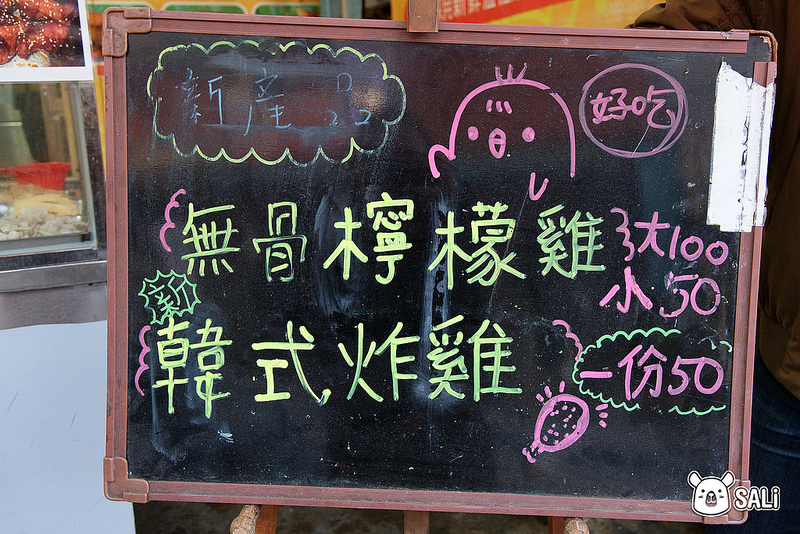 新產品
好吃
無骨檸檬雞 大100
小50
新
韓式炸雞 一份50
SALi